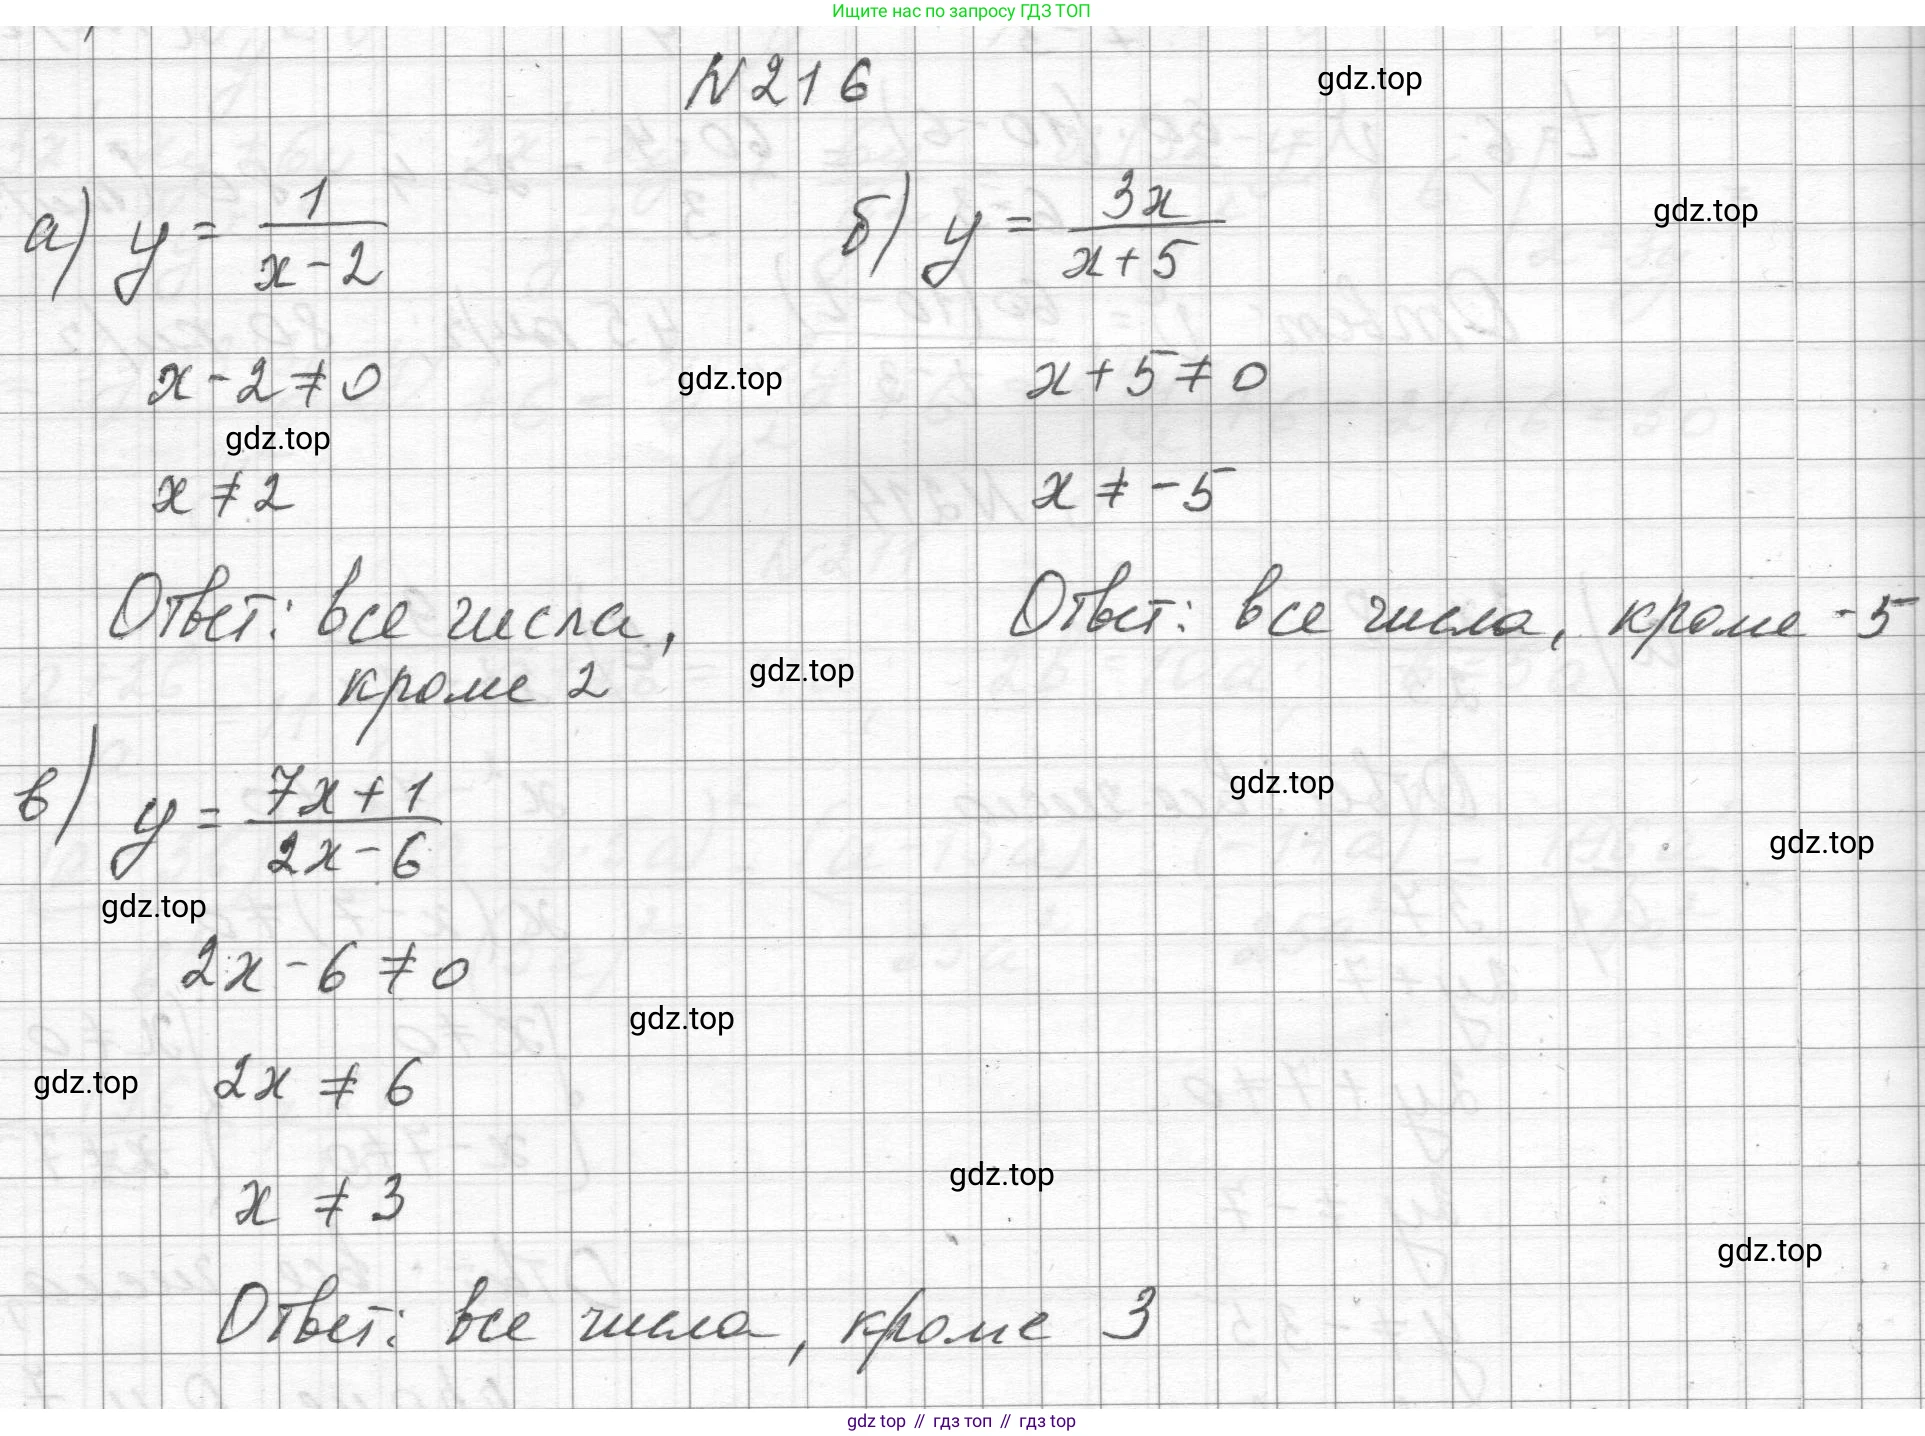 Ищите нас по запросу ГДЗ ТОП
N 216
gdz.top
а) y = 1/(x - 2)
б) y = 3x/(x + 5)
gdz.top
x - 2 ≠ 0
gdz.top
x + 5 ≠ 0
gdz.top
x ≠ 2
x ≠ -5
Ответ: все числа,
кроме 2
Ответ: все числа, кроме -5
gdz.top
в) y = (7x + 1)/(2x - 6)
gdz.top
gdz.top
gdz.top
2x - 6 ≠ 0
gdz.top
gdz.top
2x ≠ 6
gdz.top
x ≠ 3
gdz.top
Ответ: все числа, кроме 3
gdz top // гдз топ // гдз top